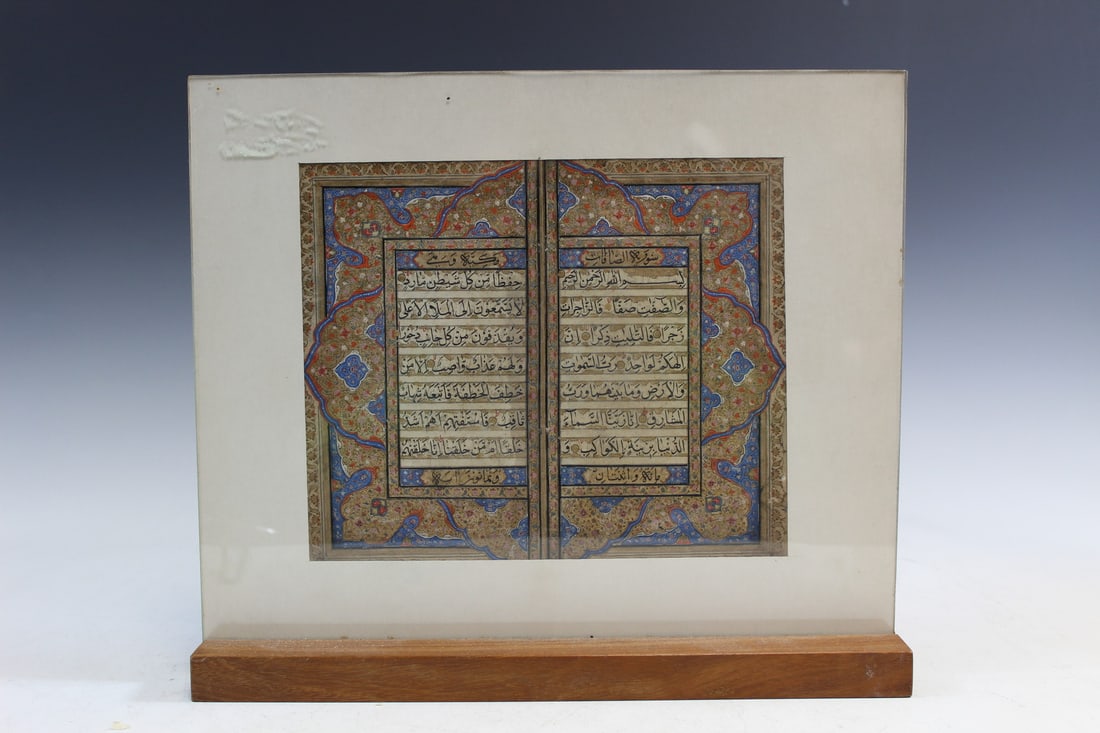 سورة الصافات
بسم الله الرحمن الرحيم
والصفت صفا فالزاجرات
زجرا فالتليت ذكرا إن
الهكم لواحد رب السموات
والارض وما بينهما ورب
المشارق إنا زينا السماء
الدنيا بزينة الكواكب و
مائة واثنتان
حفظا من كل شيطن مارد
لا يسمعون إلى الملا الاعلى
ويقذفون من كل جانب دحورا
ولهم عذاب واصب إلا من
خطف الخطفة فاتبعه شهاب
ثاقب فاستفتهم اهم اشد
خلقا ام من خلقنا إنا خلقنهم
وثمانون